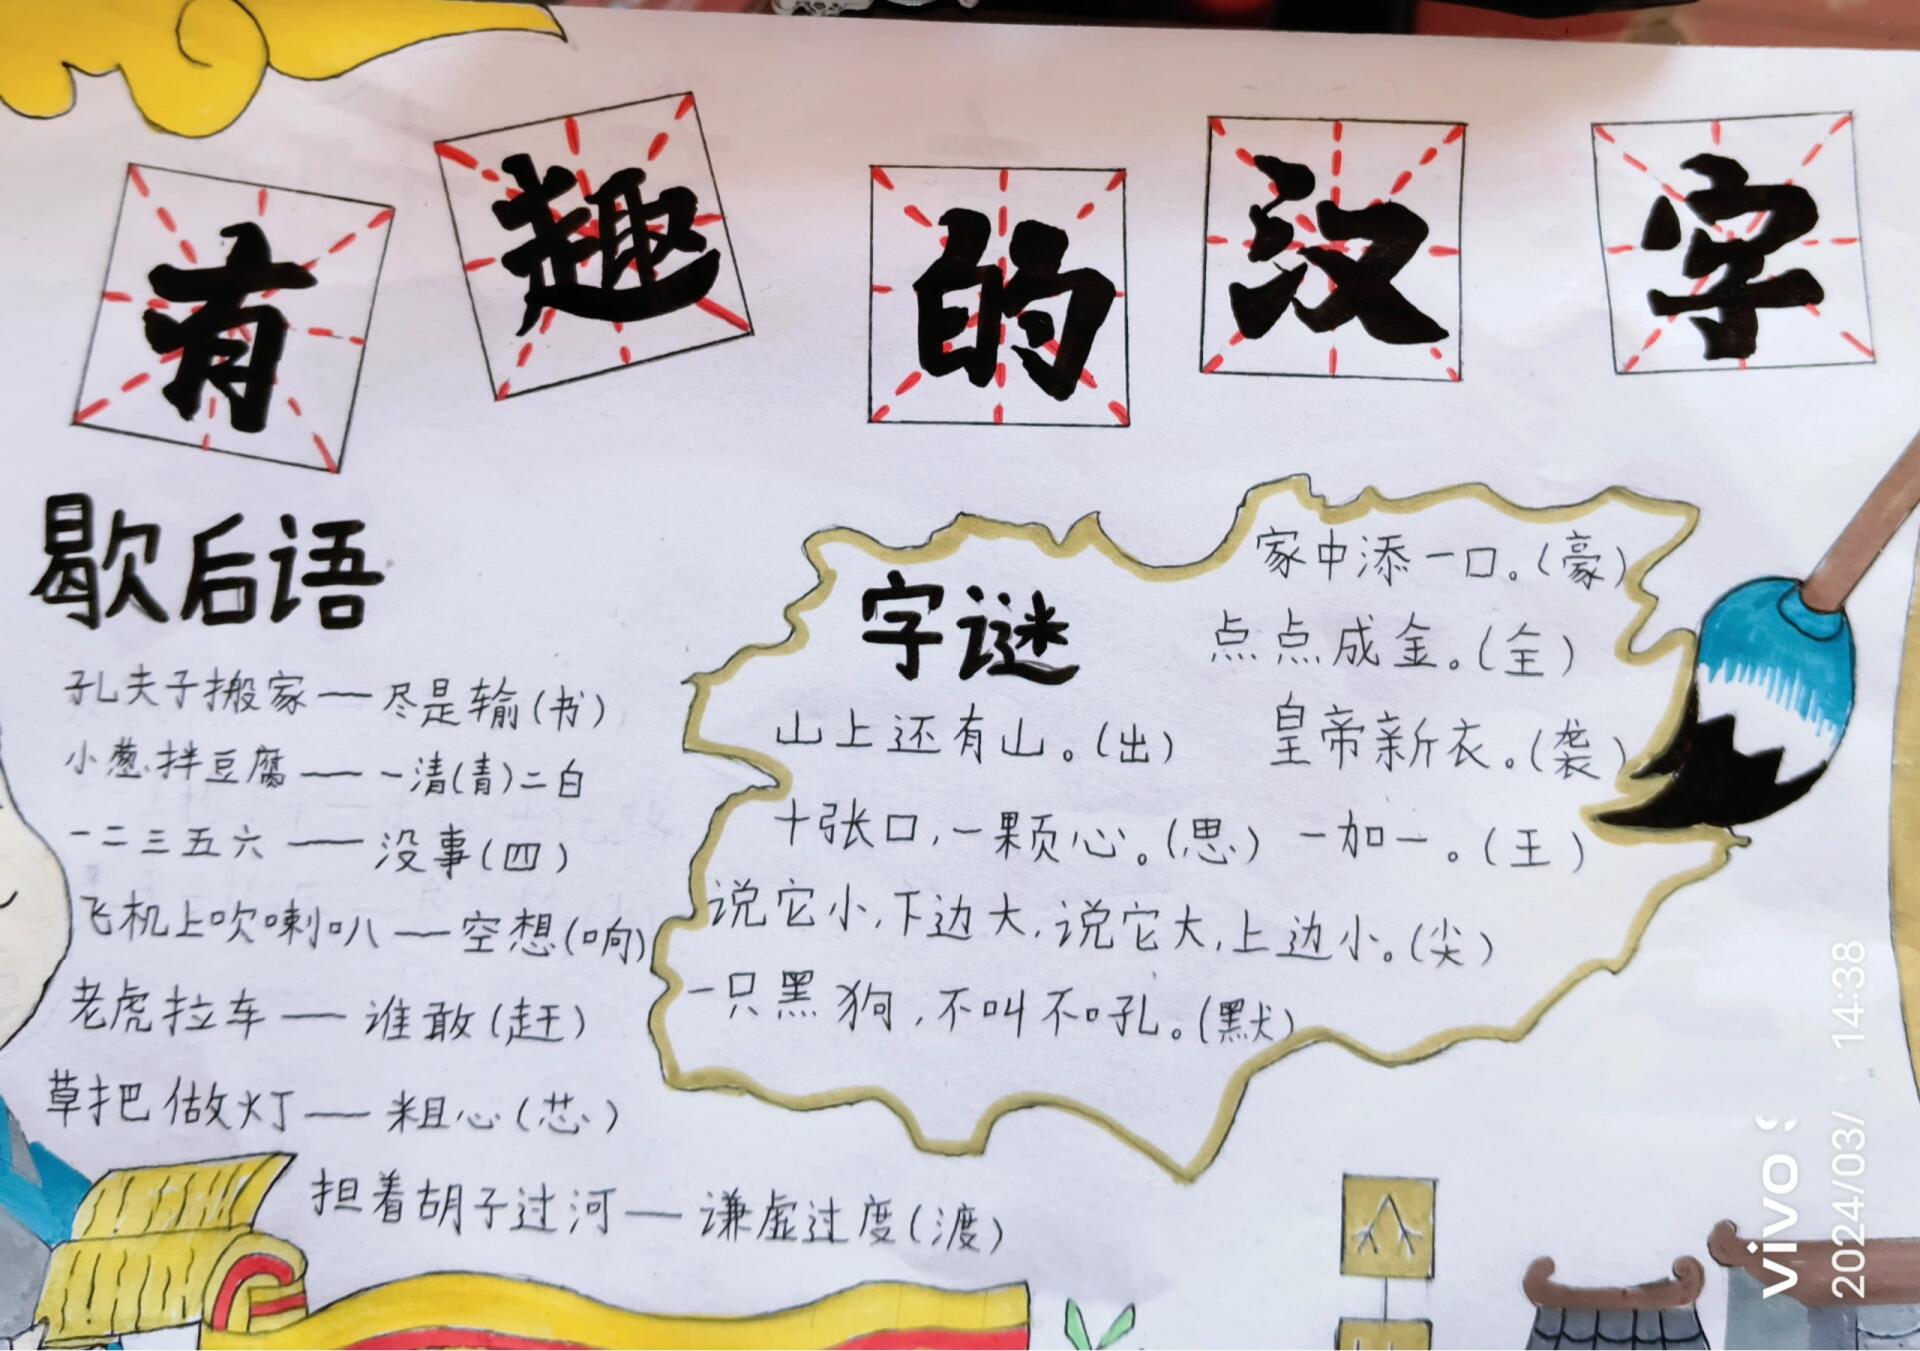 有趣的汉字
歇后语
孔夫子搬家——尽是输(书)
小葱拌豆腐——一清(青)二白
一二三五六——没事(四)
飞机上吹喇叭——空想(响)
老虎拉车——谁敢(赶)
草把做灯——粗心(芯)
担着胡子过河——谦虚过度(渡)
字谜
家中添一口。(豪)
点点成金。(全)
山上还有山。(出)
皇帝新衣。(袭)
十张口,一颗心。(思) 一加一。(王)
说它小,下边大,说它大,上边小。(尖)
一只黑狗,不叫不吼。(默)
vivo S
2024/03/ 14:38